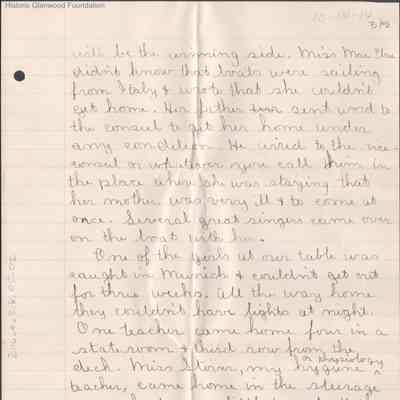 Historic Glenwood Foundation
10-18-14
3/8
will be the winning side. Miss Mac
didn't know that boats were sailing
from Italy & wrote that she couldn't
get home. Her father sent word to
the consul to get her home under
any condition. He wired to the vice-
consul or whatever you call them in
the place where she was staying that
her mother was very ill & to come at
once. Several great singers came over
on the boat with her.
One of the girls at our table was
caught in Munich & couldn't get out
for three weeks. All the way home
they couldn't have lights at night.
One teacher came home four in a
stateroom & third row from the
or physiology
deck. Miss Storer, my hygiene ^
teacher, came home in the steerage